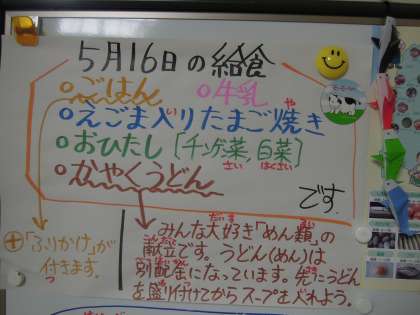 5月16日の給食
○ごはん ○牛乳
○えごま入りたまご焼き
○おひたし〔チンゲン菜,白菜〕
○かやくうどん
です。
⊕「ふりかけ」が
付きます。
みんな大好き「めん類」の
献立です。うどん(めん)は
別配缶になっています。先にうどん
を盛り付けてからスープを入れよう。